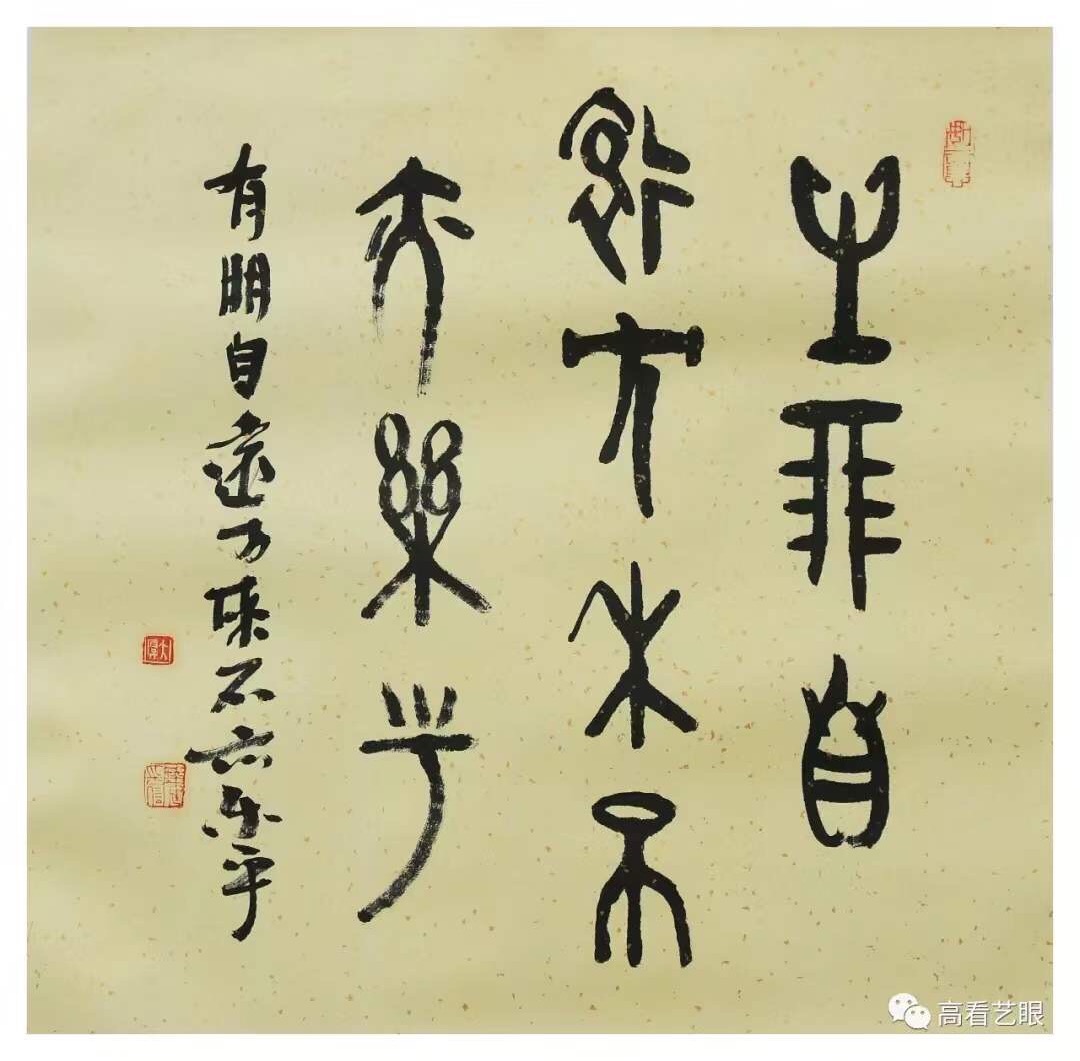 有朋自
遠方來不
亦樂乎
有朋自遠方來不亦樂乎
高看艺眼